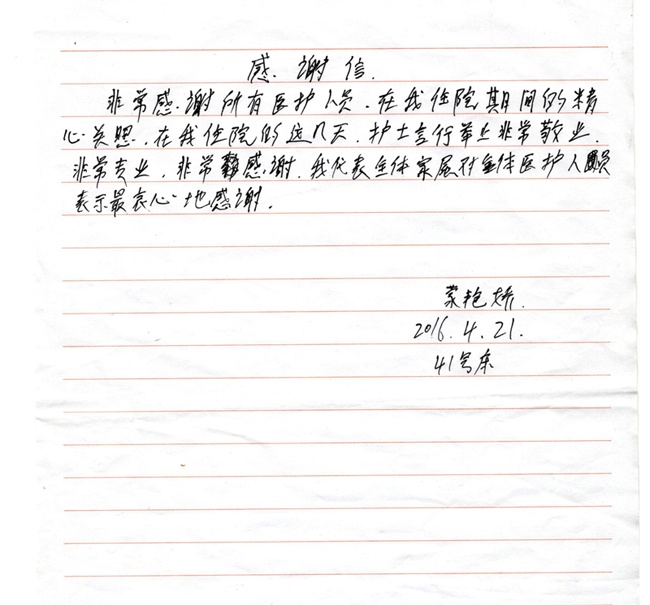 感谢信.
非常感谢所有医护人员.在我住院其间的精
心关照.在我住院的这几天.护士言行举止非常敬业.
非常专业.非常感谢.我代表全体家属对全体医护人员
表示最衷心地感谢.
蒙艳娇.
2016.4.21.
41号床